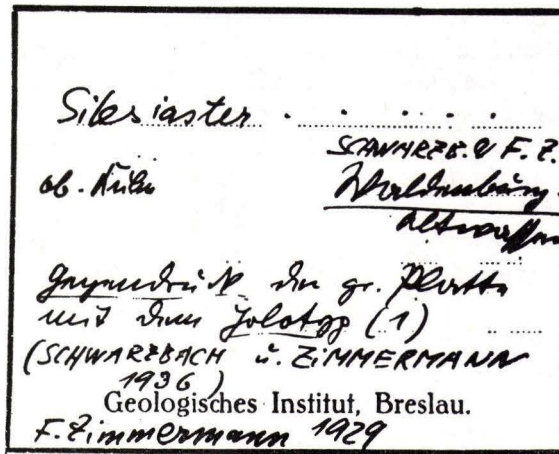 Silesiaster
SCHWARZB. & F. Z.
ob. Kulm Waldenburg-
Altwasser
Gegendruck der gr. Platte
mit dem Holotyp (1)
(SCHWARZBACH u. ZIMMERMANN
1936)
Geologisches Institut, Breslau.
F. Zimmermann 1929